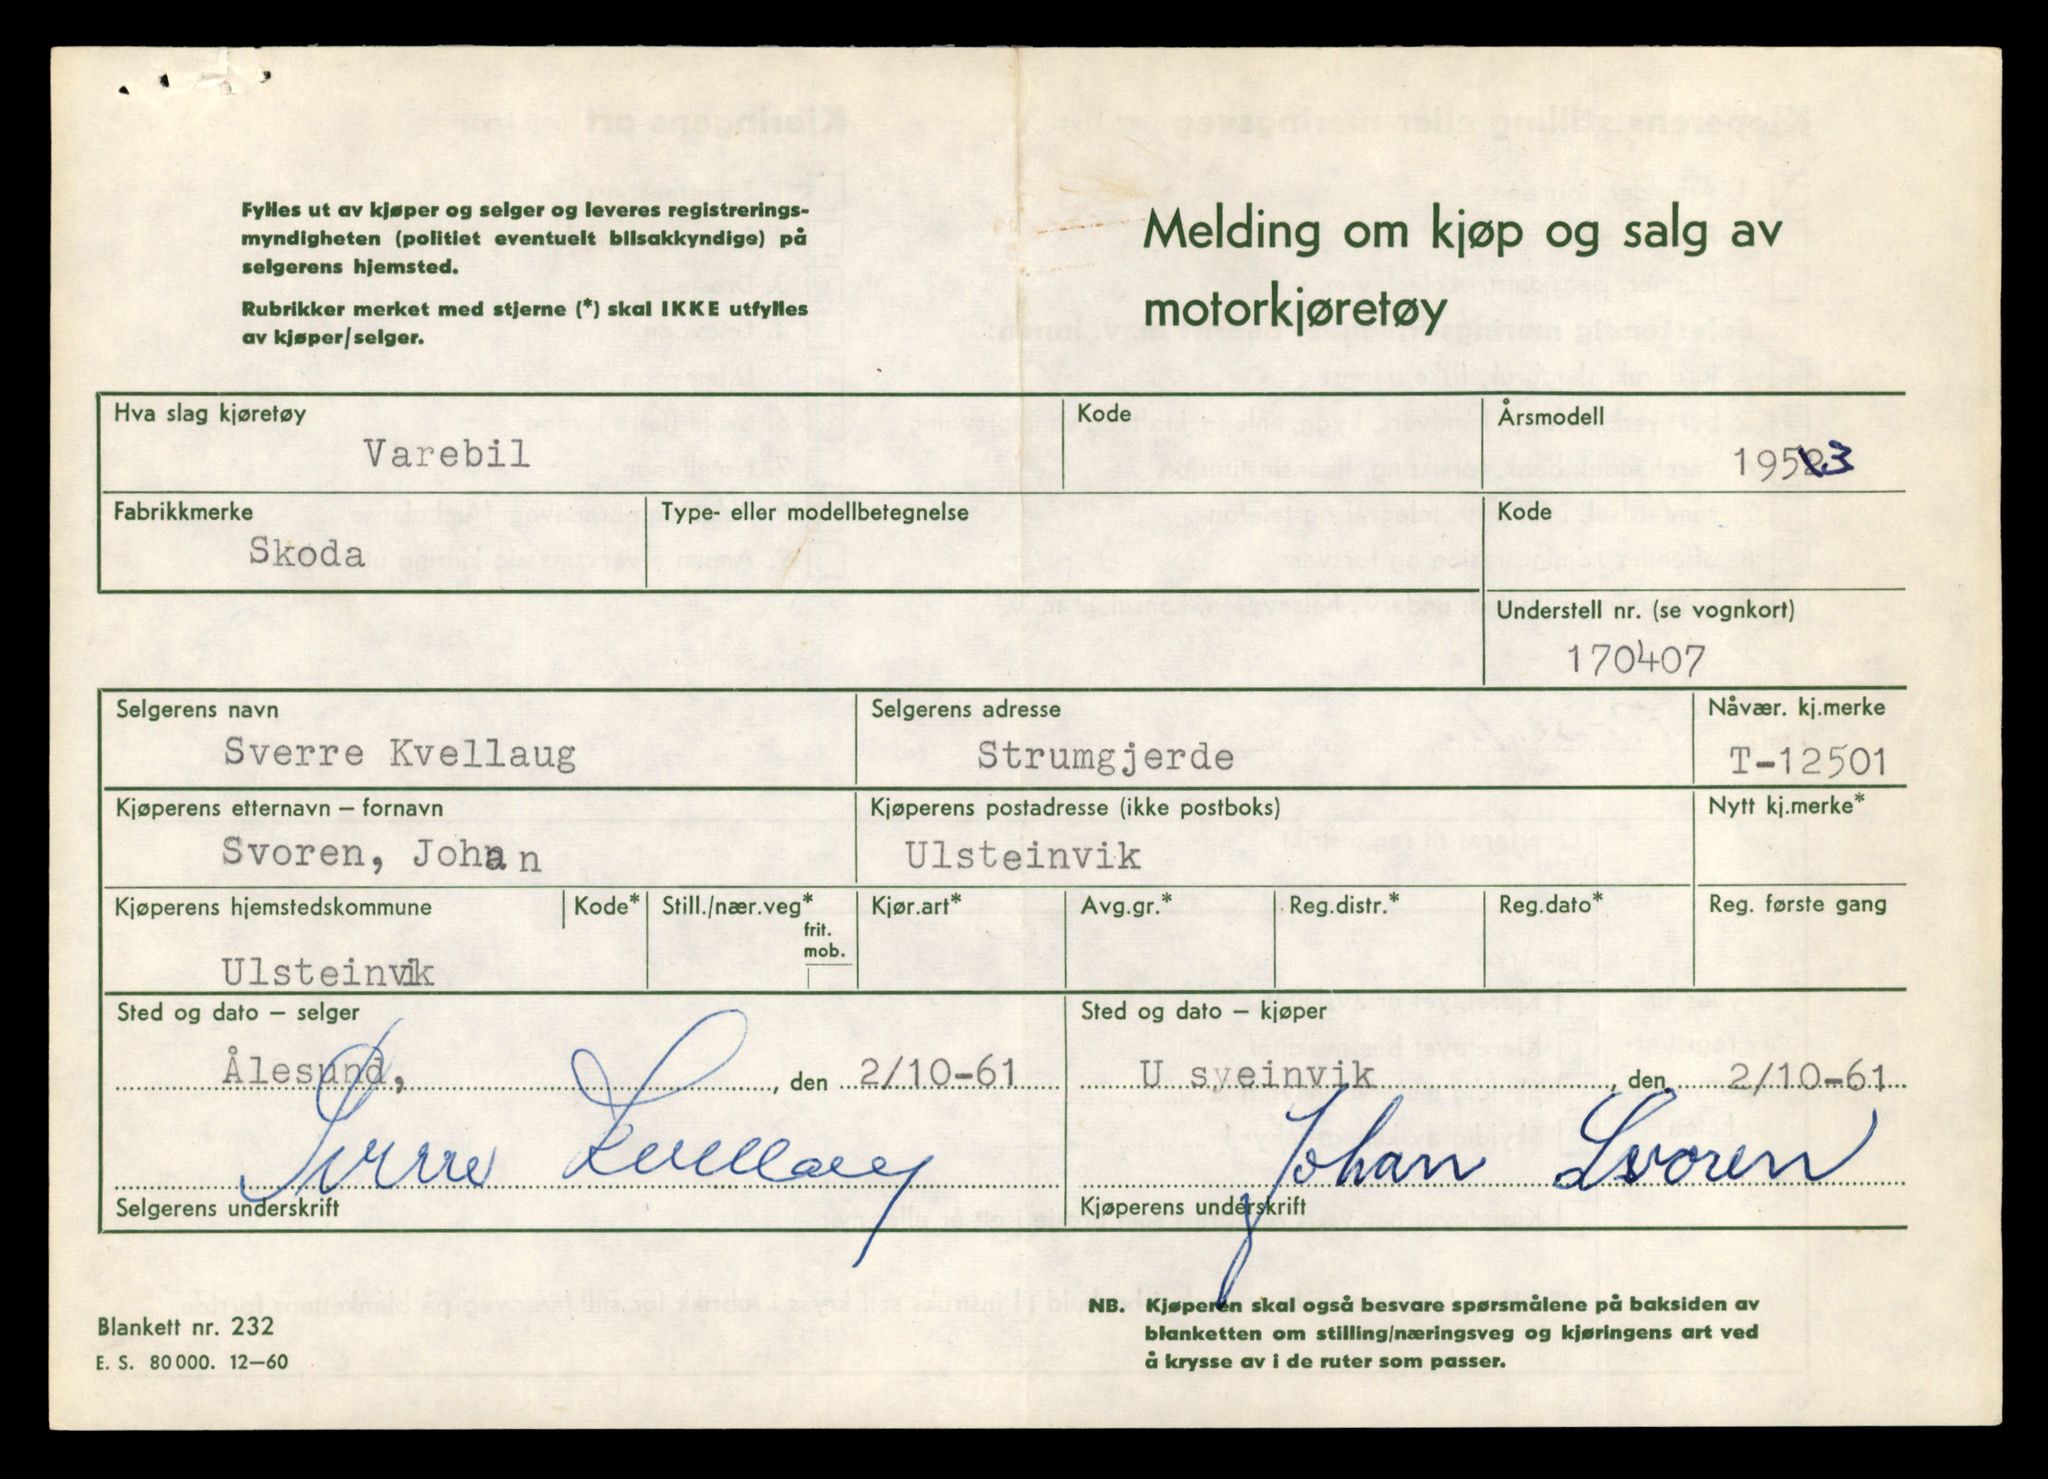 Fylles ut av kjøper og selger og leveres registrerings-
myndigheten (politiet eventuelt bilsakkyndige) på
selgerens hjemsted.
Rubrikker merket med stjerne (*) skal IKKE utfylles
av kjøper/selger.
Melding om kjøp og salg av
motorkjøretøy
Hva slag kjøretøy Kode Årsmodell
Varebil 1953
Fabrikkmerke Type- eller modellbetegnelse Kode
Skoda
Understell nr. (se vognkort)
170407
Selgerens navn Selgerens adresse Nåvær. kj.merke
Sverre Kvellaug Strumgjerde T-12501
Kjøperens etternavn – fornavn Kjøperens postadresse (ikke postboks) Nytt kj.merke*
Svoren, Johan Ulsteinvik
Kjøperens hjemstedskommune Kode* Still./nær.veg* Kjør.art* Avg.gr.* Reg.distr.* Reg.dato* Reg. første gang
frit.
mob.
Ulsteinvik
Sted og dato – selger Sted og dato – kjøper
Ålesund, , den 2/10-61 U syeinvik , den 2/10-61
Sverre Kvellaug Johan Svoren
Selgerens underskrift Kjøperens underskrift
NB. Kjøperen skal også besvare spørsmålene på baksiden av
blanketten om stilling/næringsveg og kjøringens art ved
å krysse av i de ruter som passer.
Blankett nr. 232
E. S. 80 000. 12–60